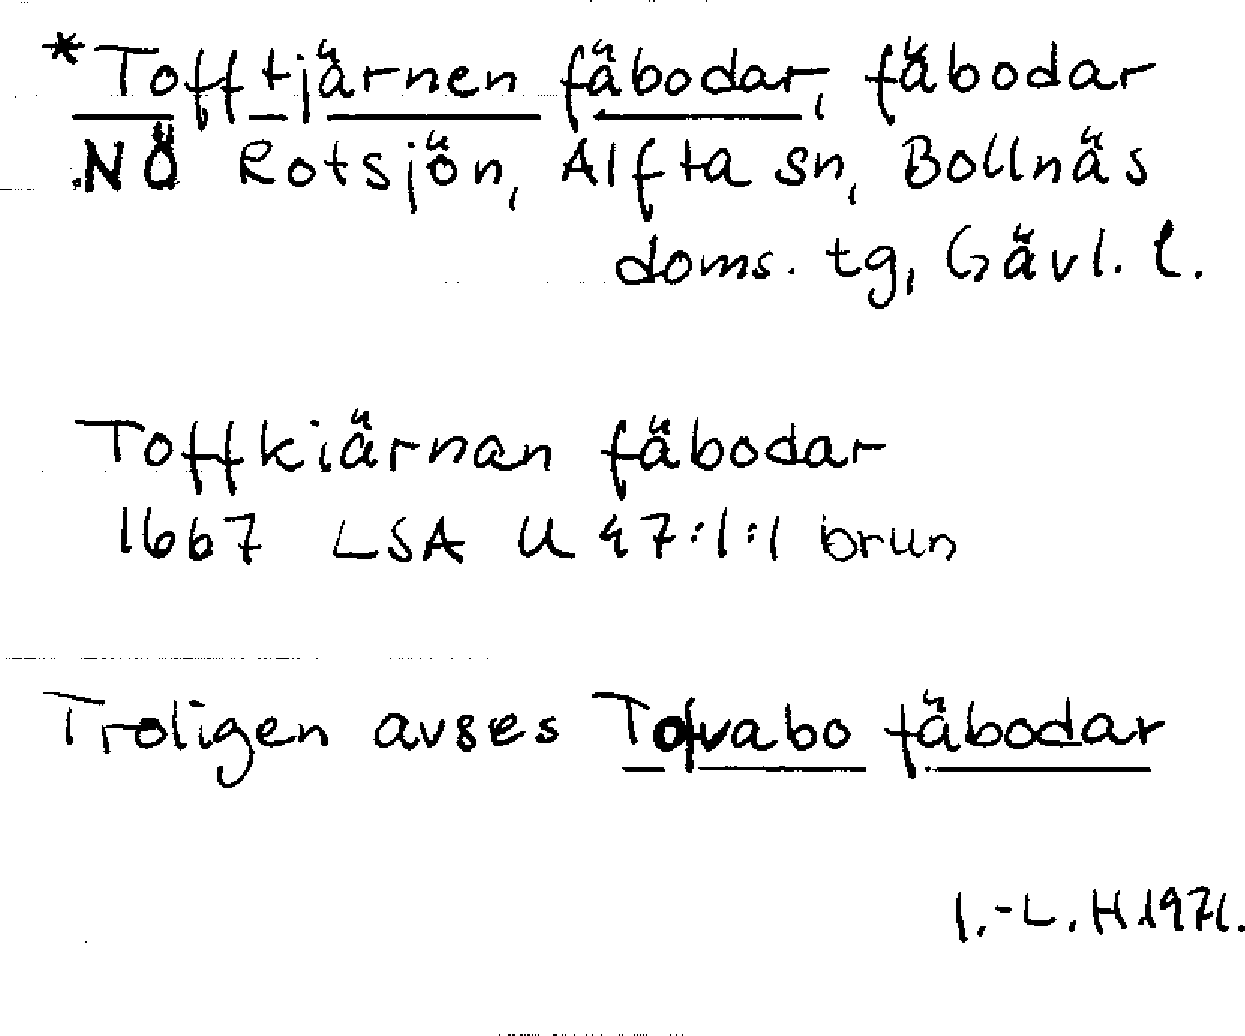 *Tofftjärnen fäbodar, fäbodar
NÖ Rotsjön, Alfta sn, Bollnäs
doms. tg, Gävl. l.
Toffkiärnan fäbodar
1667 LSA U 47:1:1 brun
Troligen avses Tofvabo fäbodar
I.-L. H 1971.